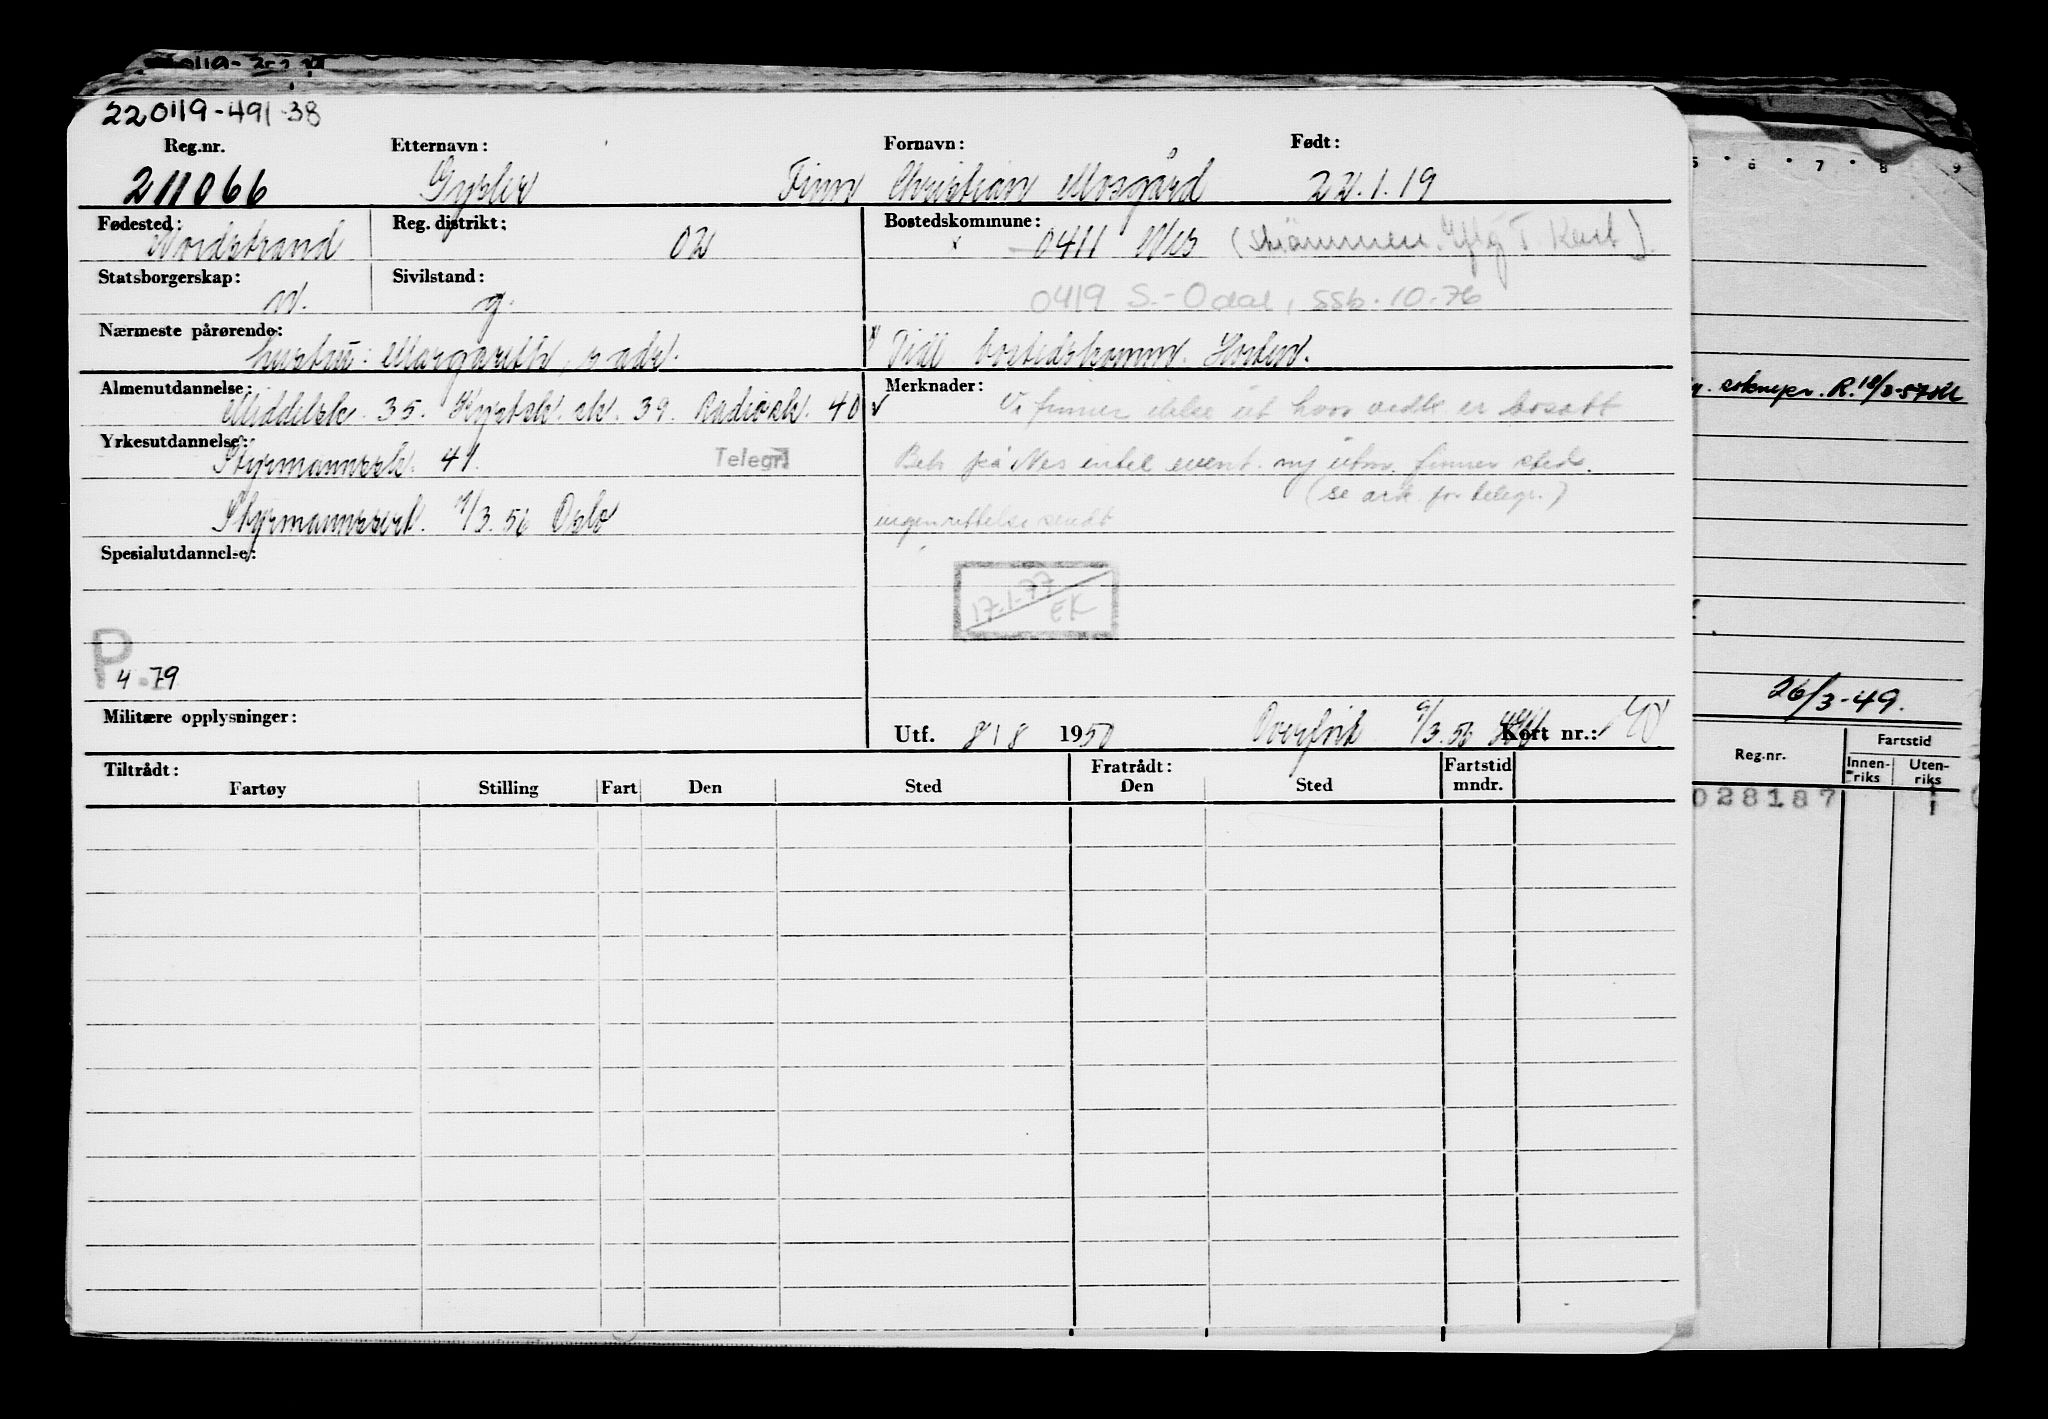 220119-491-38
Reg.nr. Etternavn: Fornavn: Født:
211066 Gysler Finn Christian Mosgård 22.1.19
Fødested: Reg. distrikt: Bostedskommune:
Nordstrand 02 0411 Nes (Strømmen. Iflg T. Kart)
Statsborgerskap: Sivilstand:
n. g. 0419 S.-Odal, ssb. 10.76
Nærmeste pårørende:
hustru: Margarethe, s. adr. Tidl. bostedskomm. Horten.
Almenutdannelse: Merknader:
Middelsk. 35. Kystsk. sk. 39. Radiosk. 40 Vi finner ikke ut hvor vedk er bosatt
Yrkesutdannelse:
Styrmannssk. 41. Telegr. Beh. på Nes inntil event. ny utm. finner sted.
(se ark for telegr.)
Styrmannssert. 7/3.56 Oslo ingen rettelse sendt
Spesialutdannelse:
17.1.77
EK
P
4.79
26/3-49.
Militære opplysninger: Utf. 8/8 1950 Overført 9/3.56 Kort nr.:
Reg.nr. Fartstid
Innenriks Utenriks
Tiltrådt: Fratrådt: Fartstid
Fartøy Stilling Fart Den Sted Den Sted mndr.
028187 1
R. 18/3-57
5 6 7 8 9